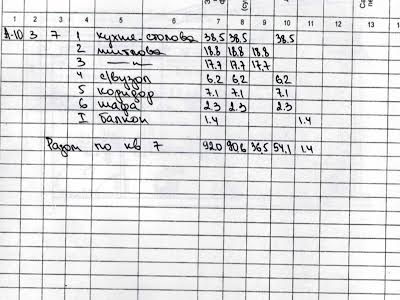 1 2 3 4 5 6 7 8 9 10 11 12 13
А-10 3 7 1 кухня-столова 38,5 38,5 38,5
2 житлова 18,8 18,8 18,8
3 —"— 17.7 17.7 17,7
4 с/вузол 6,2 6,2 6,2
5 коридор 7.1 7.1 7.1
6 шафа 2.3 2.3 2.3
I балкон 1.4 1.1
Разом по кв 7 92.0 90,6 36,5 54,1 1.4